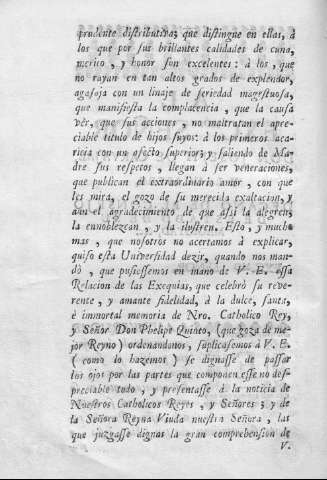 prudente distributiva; que distingue en ellas, à
los que por sus brillantes calidades de cuna,
merito, y honor son excelentes: à los, que
no rayan en tan altos grados de explendor,
agasaja con un linaje de seriedad magestuosa,
que manifiesta la complacencia, que la causa
vèr, que sus acciones, no maltratan el apre-
ciable titulo de hijos suyos: à los primeros aca-
ricia con un afecto superior; y saliendo de Ma-
dre sus respetos, llegan à ser veneraciones,
que publican el extraordinario amor, con que
les mira, el gozo de su merecida exaltacion, y
aun el agradecimiento de que assi la alegren,
la ennoblezcan, y la ilustren. Esto, y mucho
mas, que nosotros no acertamos à explicar,
quiso esta Universidad dezir, quando nos man-
dò, que pusiessemos en mano de V. E. essa
Relacion de las Exequias, que celebrò su reve-
rente, y amante fidelidad, à la dulce, santa,
è immortal memoria de Nro. Catholico Rey,
y Señor Don Phelipe Quinto, (que goza de me-
jor Reyno) ordenandonos, suplicassemos à V. E.
(como lo hazemos) se dignasse de passar
los ojos por las partes que componen esse no des-
preciable todo, y presentasse à la noticia de
Nuestros Catholicos Reyes, y Señores; y de
la Señora Reyna Viuda nuestra Señora, las
que juzgasse dignas la gran comprehension de
V.